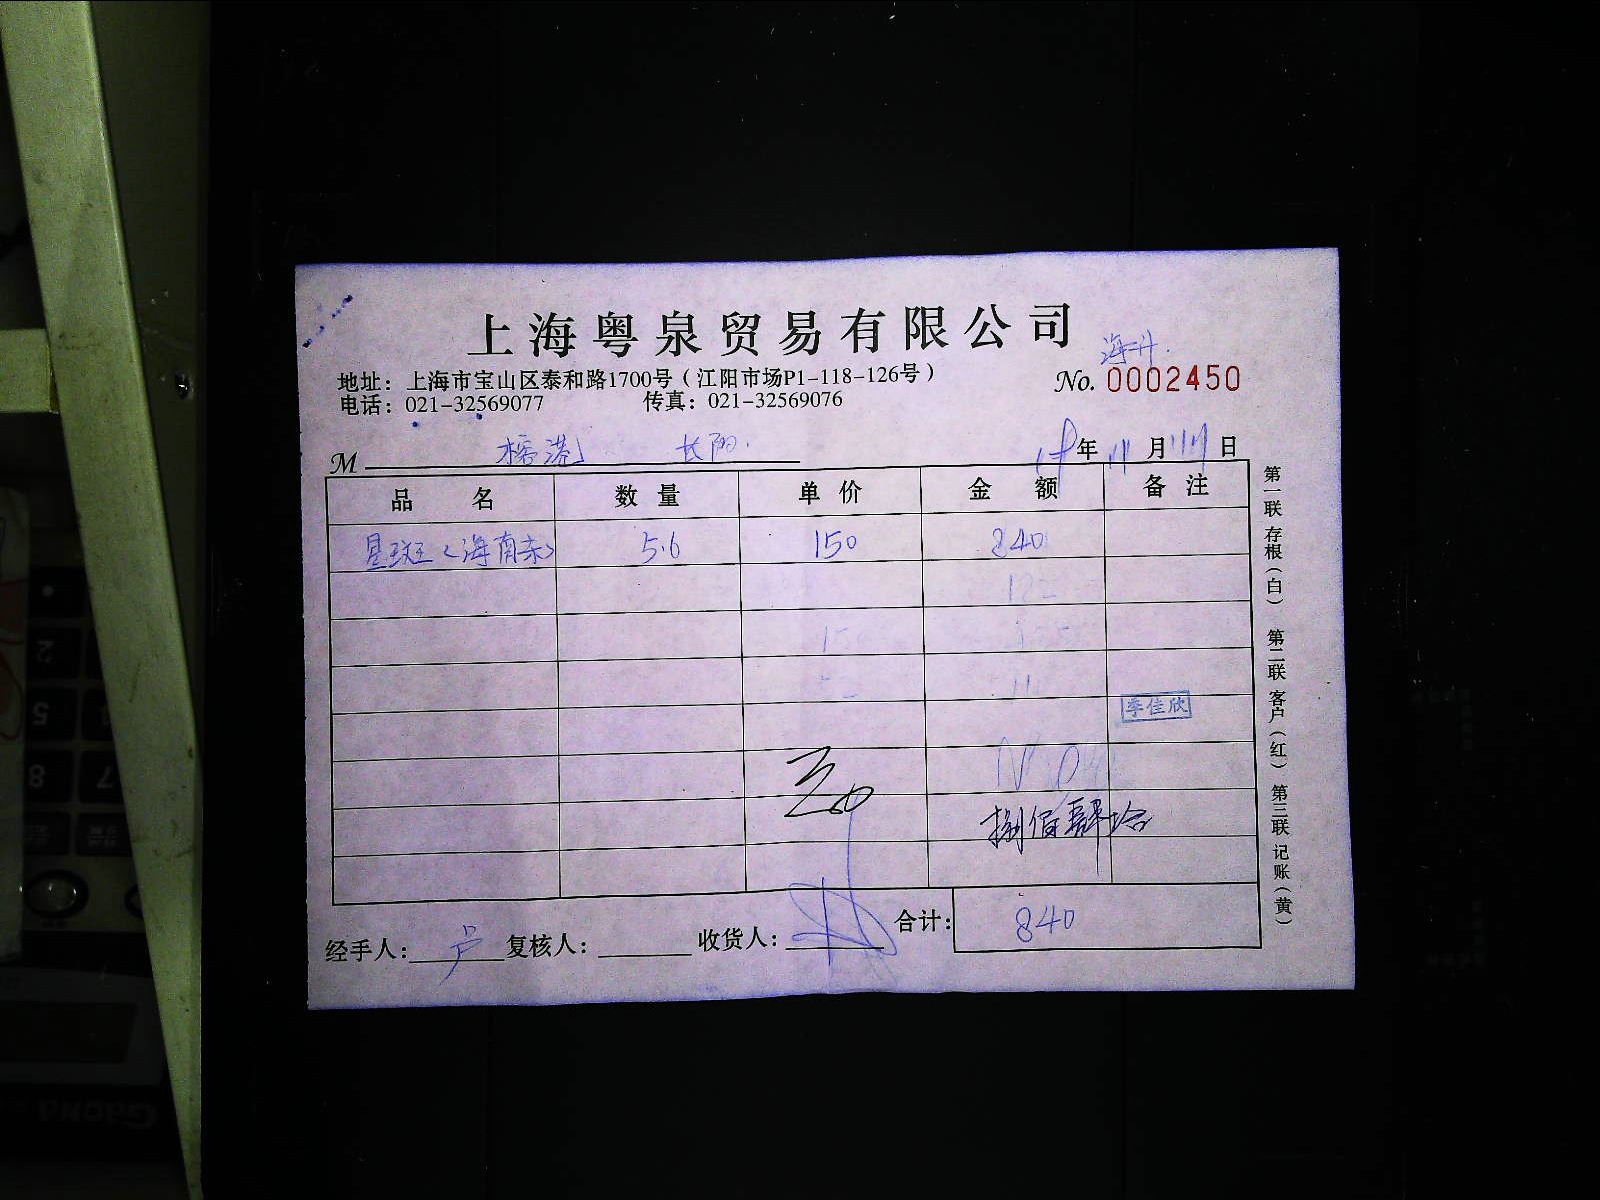 上海粤泉贸易有限公司
地址：上海市宝山区泰和路1700号（江阳市场P1-118-126号）
No. 0002450
电话：021-32569077 传真：021-32569076
M 榕港 长阳
年 月 日
品名 数量 单价 金额 备注
星斑（海南赤） 5.6 150 840
李佳欣
捌佰肆拾
经手人：卢 复核人： 收货人： 合计：840
第一联 存根（白） 第二联 客户（红） 第三联 记账（黄）
2
5
8
7